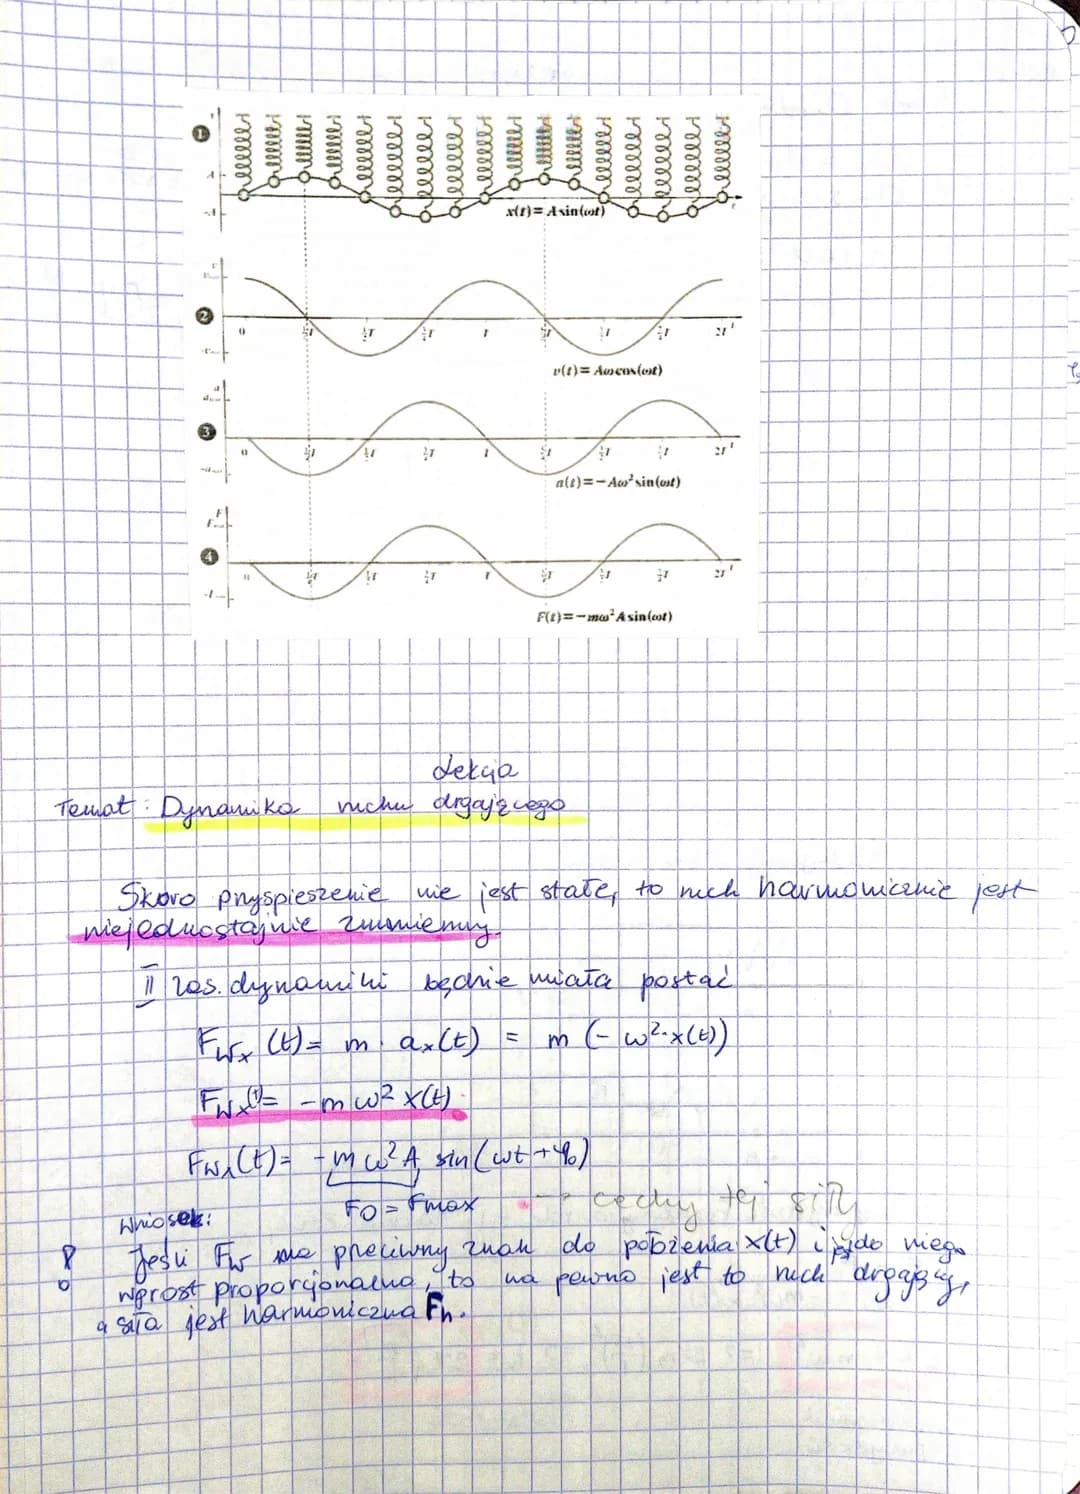 1
x(t)=Asin(ωt)
2
0
T
2T
v(t)=Aωcos(ωt)
3
0
2T
a(t)=−Aω²sin(ωt)
4
F
T
2T
F(t)=−mω²Asin(ωt)
Lekcja
Temat: Dynamika ruchu drgającego
Skoro przyspieszenie nie jest stałe, to ruch harmonicznie jest
niejednostajnie zmienny.
II zas. dynamiki będzie miała postać
Fwx (t) = m · ax(t) = m (- ω²·x(t))
Fwx(t) = -mω² x(t).
Fwx(t) = -mω²A sin(ωt+φ₀)
F0 = Fmax → cechy tej siły
Wniosek:
Jeśli Fw ma przeciwny znak do położenia x(t) i do niego
wprost proporcjonalna, to na pewno jest to ruch drgający,
a siła jest harmoniczna Fh.